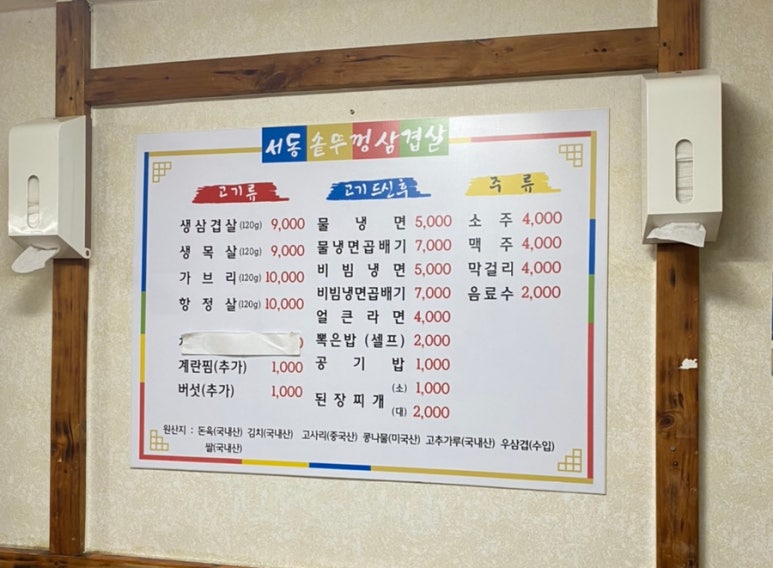 서동 솥뚜껑삼겹살
고기류
생삼겹살(120g) 9,000
생목살(120g) 9,000
가브리(120g) 10,000
항정살(120g) 10,000
계란찜(추가) 1,000
버섯(추가) 1,000
고기드신후
물냉면 5,000
물냉면곱배기 7,000
비빔냉면 5,000
비빔냉면곱배기 7,000
얼큰라면 4,000
뽁은밥(셀프) 2,000
공기밥 1,000
된장찌개 (소) 1,000
(대) 2,000
주류
소주 4,000
맥주 4,000
막걸리 4,000
음료수 2,000
원산지 : 돈육(국내산) 김치(국내산) 고사리(중국산) 콩나물(미국산) 고추가루(국내산) 우삼겹(수입)
쌀(국내산)